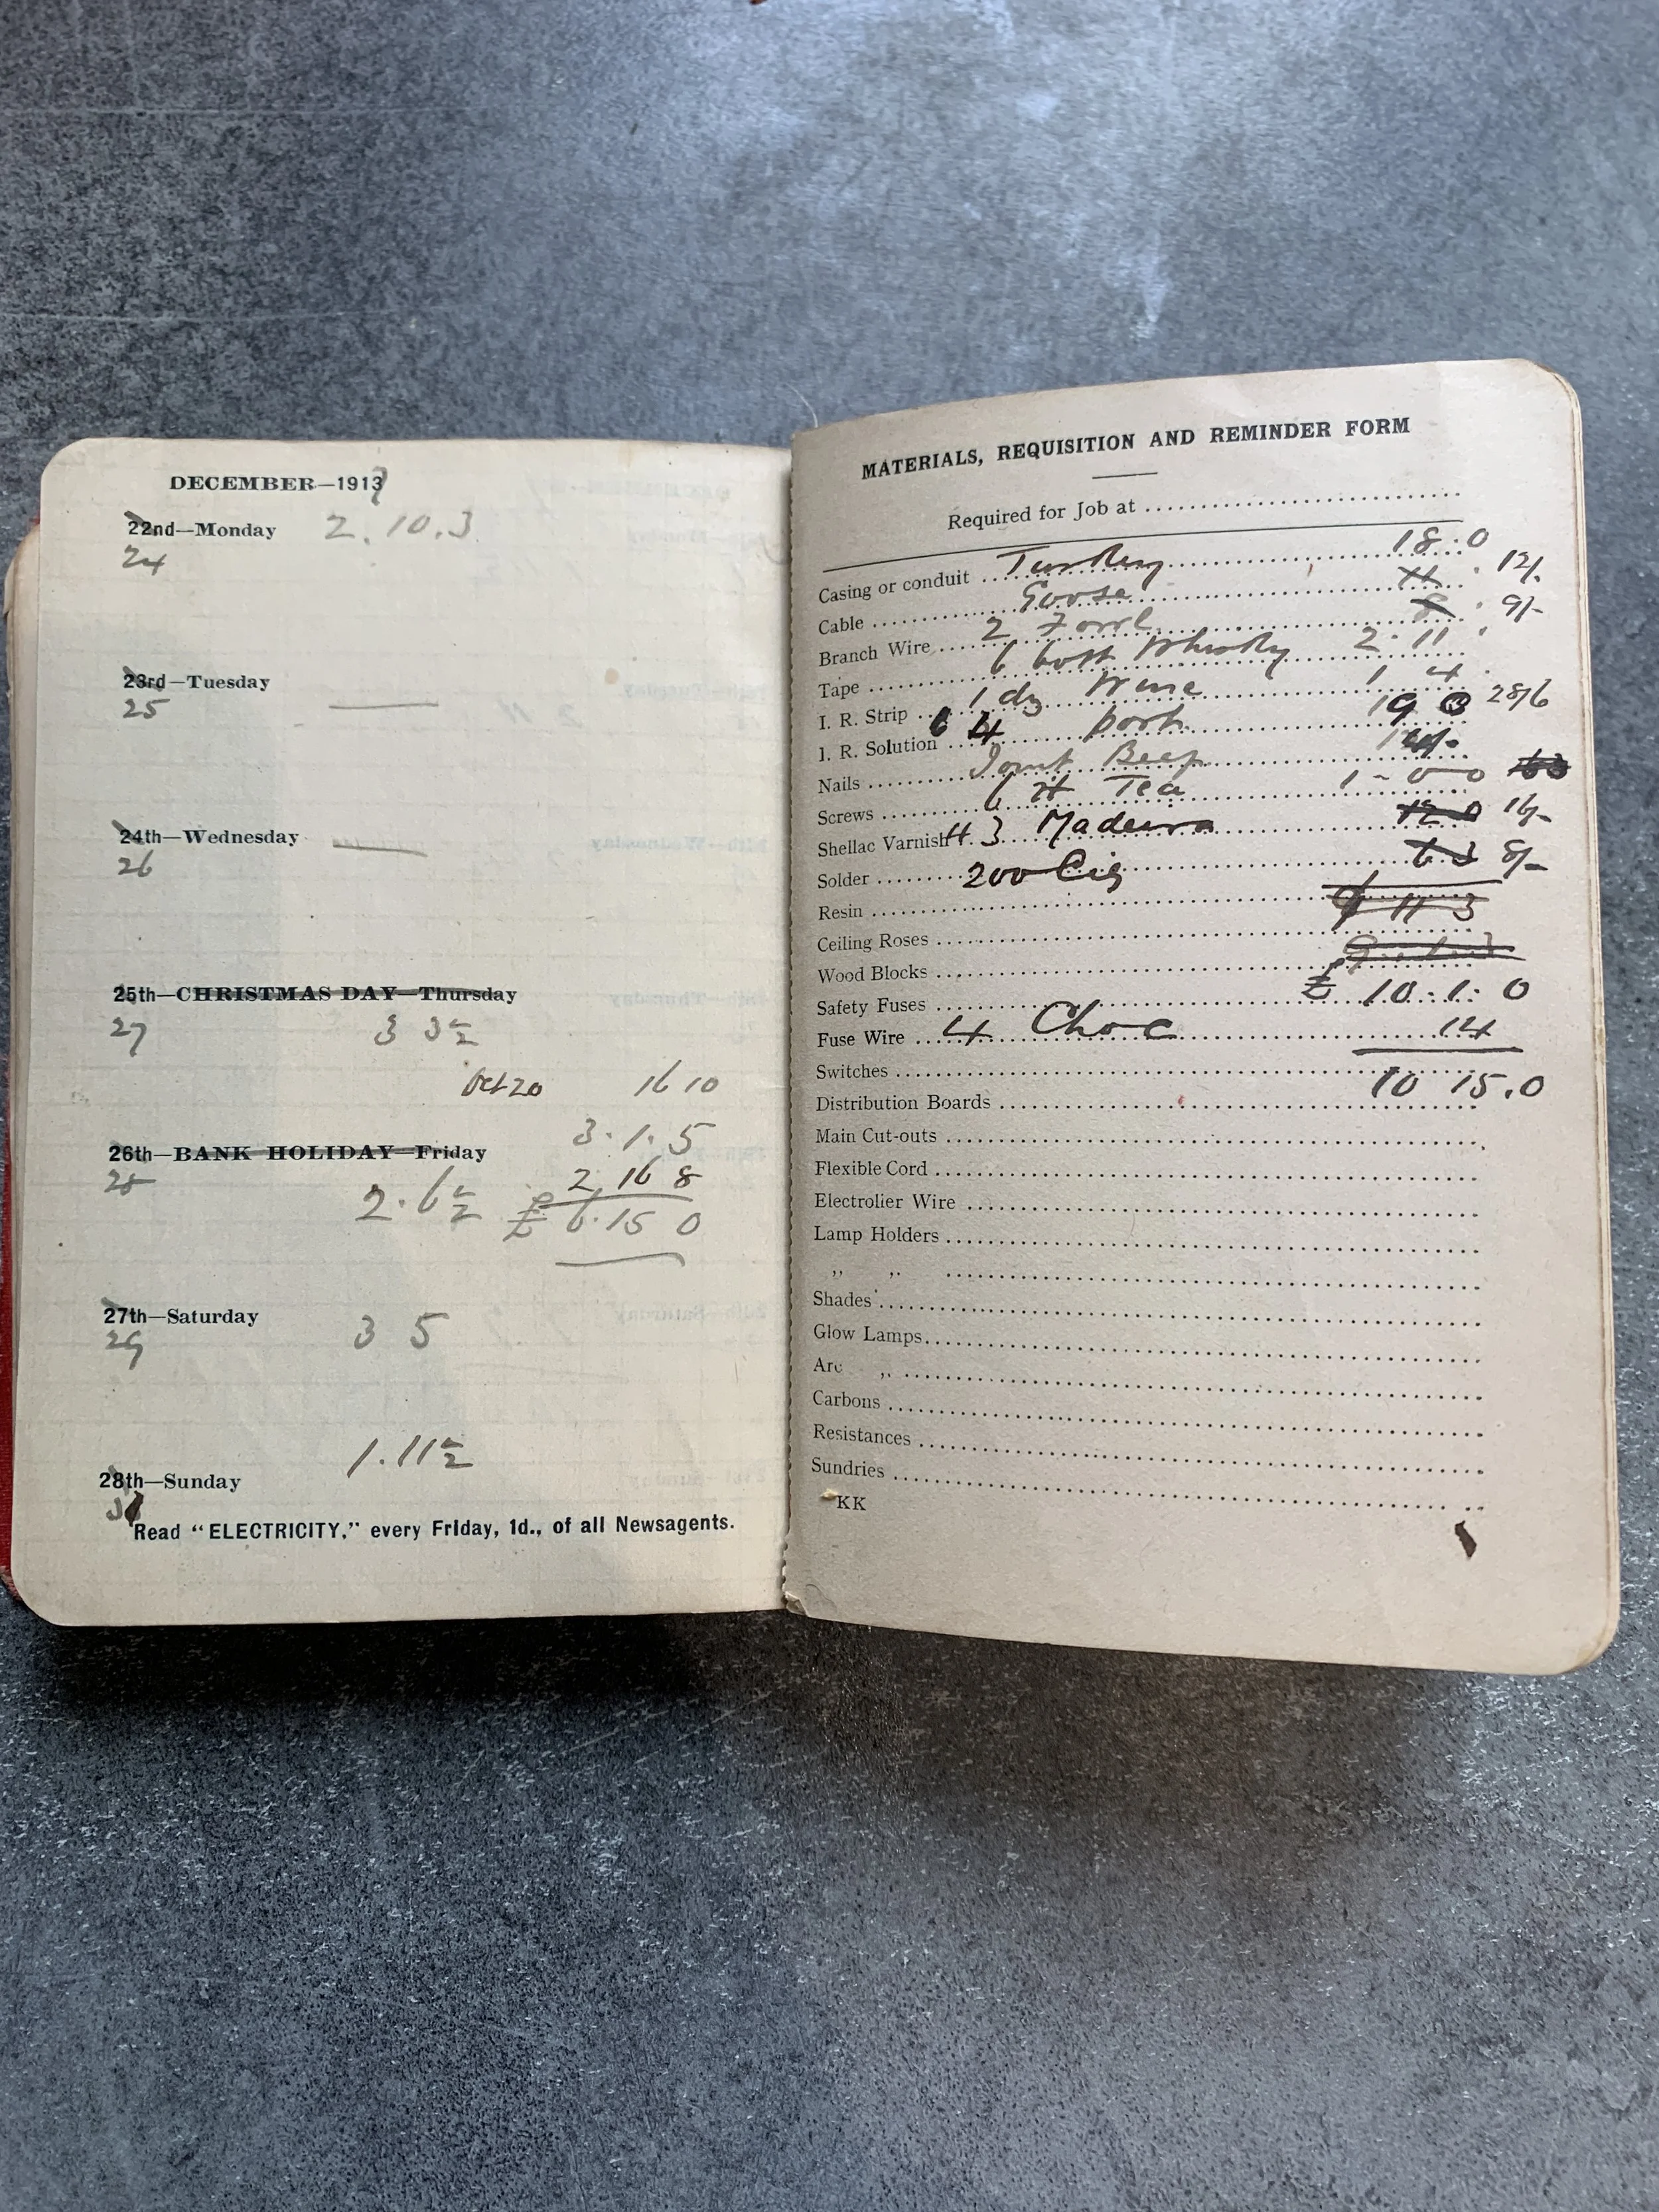 DECEMBER—1913
22nd—Monday 2.10.3
24
23rd—Tuesday
25
24th—Wednesday
26
25th—CHRISTMAS DAY—Thursday
27 3 3½
Oct 20 16 10
3.1.5
26th—BANK HOLIDAY—Friday
28 2 16 8
2.6½ £ 6.15 0
27th—Saturday
29 3 5
1.11½
28th—Sunday
Read "ELECTRICITY," every Friday, 1d., of all Newsagents.
MATERIALS, REQUISITION AND REMINDER FORM
Required for Job at
Casing or conduit Turkey 18.0
Cable Goose 11 12/-
Branch Wire 2 Fowl 8 9/-
Tape 6 bott Whisky 2.11
I. R. Strip 1 dz Wine 1 4
I. R. Solution 6 4 Port 19 0 28/6
Nails Joint Beef
Screws 6 lt Tea 1-0-0
Shellac Varnish 4. 3 Madeira 12 0 16/-
Solder 200 Cig 6 3 8/-
Resin 9 11 3
Ceiling Roses
Wood Blocks
Safety Fuses £ 10.1.0
Fuse Wire 4 Choc 14
Switches
Distribution Boards 10 15.0
Main Cut-outs
Flexible Cord
Electrolier Wire
Lamp Holders
,, ,,
Shades
Glow Lamps
Arc ,,
Carbons
Resistances
Sundries
KK